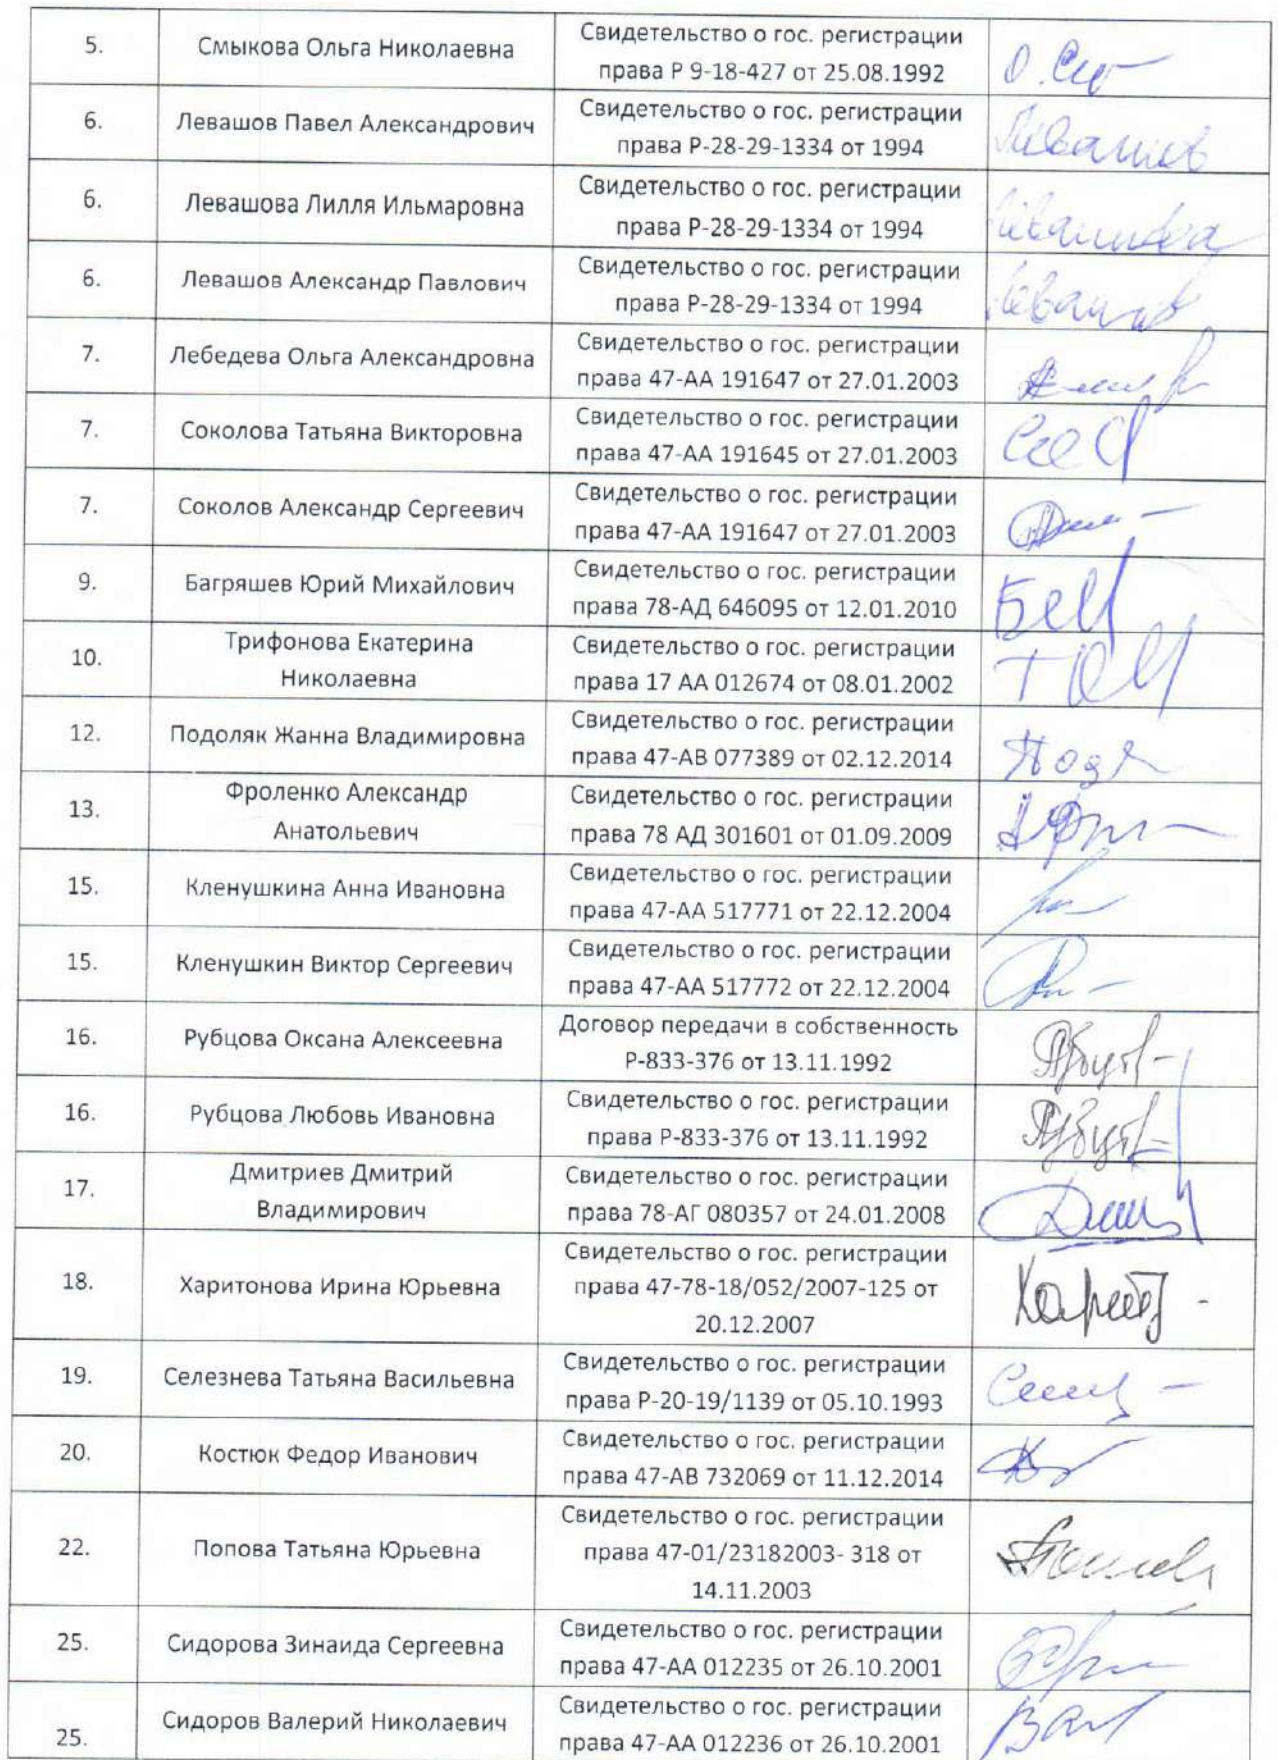 5.
Смыкова Ольга Николаевна
Свидетельство о гос. регистрации
права Р 9-18-427 от 25.08.1992
6.
Левашов Павел Александрович
Свидетельство о гос. регистрации
права Р-28-29-1334 от 1994
Левашов
6.
Левашова Лилля Ильмаровна
Свидетельство о гос. регистрации
права Р-28-29-1334 от 1994
Левашова
6.
Левашов Александр Павлович
Свидетельство о гос. регистрации
права Р-28-29-1334 от 1994
Левашов
7.
Лебедева Ольга Александровна
Свидетельство о гос. регистрации
права 47-АА 191647 от 27.01.2003
7.
Соколова Татьяна Викторовна
Свидетельство о гос. регистрации
права 47-АА 191645 от 27.01.2003
7.
Соколов Александр Сергеевич
Свидетельство о гос. регистрации
права 47-АА 191647 от 27.01.2003
9.
Багряшев Юрий Михайлович
Свидетельство о гос. регистрации
права 78-АД 646095 от 12.01.2010
10.
Трифонова Екатерина
Николаевна
Свидетельство о гос. регистрации
права 17 АА 012674 от 08.01.2002
12.
Подоляк Жанна Владимировна
Свидетельство о гос. регистрации
права 47-АВ 077389 от 02.12.2014
13.
Фроленко Александр
Анатольевич
Свидетельство о гос. регистрации
права 78 АД 301601 от 01.09.2009
15.
Кленушкина Анна Ивановна
Свидетельство о гос. регистрации
права 47-АА 517771 от 22.12.2004
15.
Кленушкин Виктор Сергеевич
Свидетельство о гос. регистрации
права 47-АА 517772 от 22.12.2004
16.
Рубцова Оксана Алексеевна
Договор передачи в собственность
Р-833-376 от 13.11.1992
16.
Рубцова Любовь Ивановна
Свидетельство о гос. регистрации
права Р-833-376 от 13.11.1992
17.
Дмитриев Дмитрий
Владимирович
Свидетельство о гос. регистрации
права 78-АГ 080357 от 24.01.2008
18.
Харитонова Ирина Юрьевна
Свидетельство о гос. регистрации
права 47-78-18/052/2007-125 от
20.12.2007
19.
Селезнева Татьяна Васильевна
Свидетельство о гос. регистрации
права Р-20-19/1139 от 05.10.1993
20.
Костюк Федор Иванович
Свидетельство о гос. регистрации
права 47-АВ 732069 от 11.12.2014
22.
Попова Татьяна Юрьевна
Свидетельство о гос. регистрации
права 47-01/23182003- 318 от
14.11.2003
25.
Сидорова Зинаида Сергеевна
Свидетельство о гос. регистрации
права 47-АА 012235 от 26.10.2001
25.
Сидоров Валерий Николаевич
Свидетельство о гос. регистрации
права 47-АА 012236 от 26.10.2001